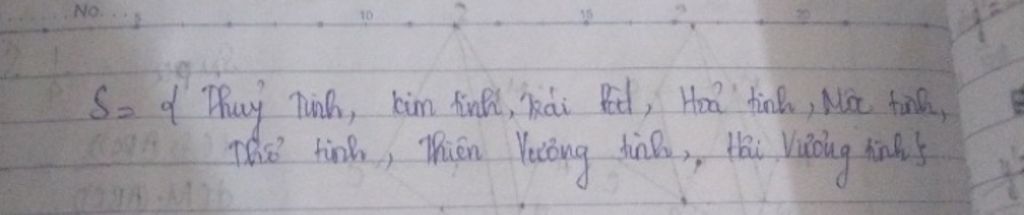 No.
10 15 20
S = { Thuỷ tinh, kim tinh, Trái Đất, Hoả tinh, Mộc tinh,
Thổ tinh, Thiên Vương tinh, Hải Vương tinh }